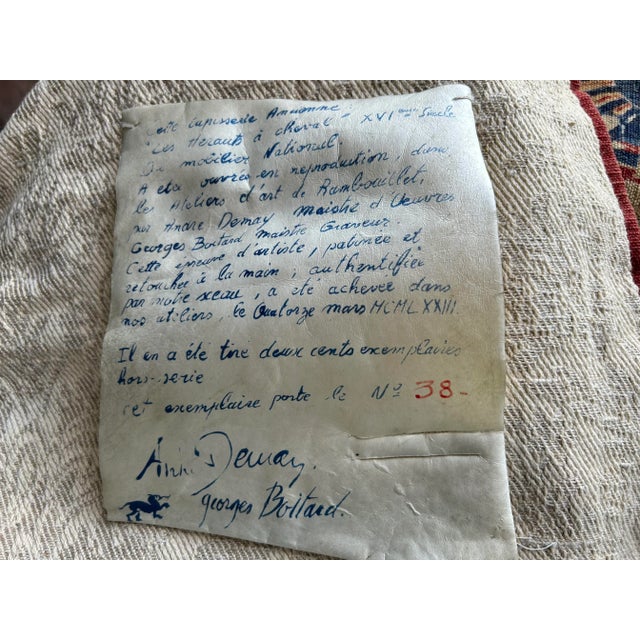 Cette tapisserie Ancienne :
"Les Herauts à cheval" XVIème Siècle
Du mobilier National,
A ete ouvrée en reproduction, dans
les Ateliers d'art de Rambouillet,
par André Demay Maistre d'Oeuvres
Georges Boitard maistre Graveur.
Cette oeuvre d'artiste, patinée et
retouchée à la main, authentifiée
par notre sceau, a été achevée dans
nos ateliers, le Quatorze mars MCMLXXIII.
Il en a été tiré deux cents exemplaires
hors-serie
cet exemplaire porte le No 38-
André Demay.
Georges Boitard.